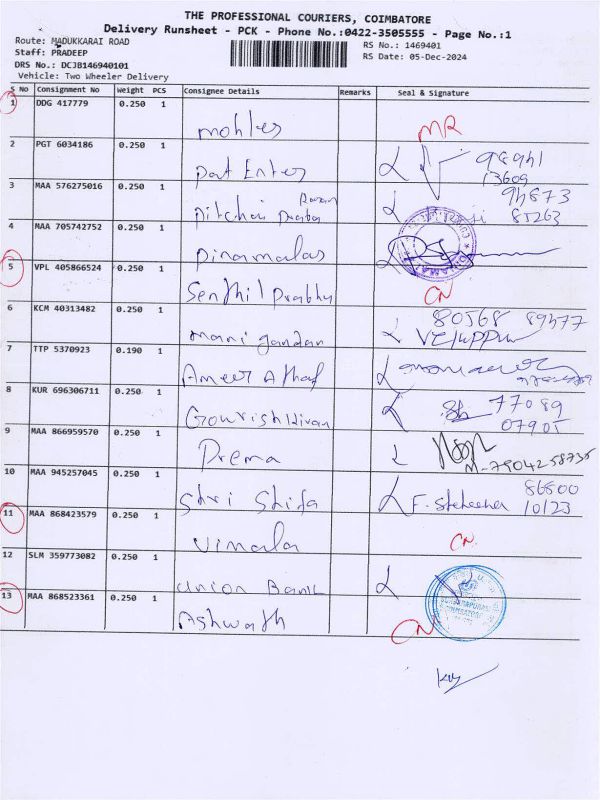 THE PROFESSIONAL COURIERS, COIMBATORE
Delivery Runsheet - PCK - Phone No.:0422-3505555 - Page No.:1
Route: MADUKKARAI ROAD
RS No.: 1469401
Staff: PRADEEP
RS Date: 05-Dec-2024
DRS No.: DCJB146940101
Vehicle: Two Wheeler Delivery
S No Consignment No Weight PCS Consignee Details Remarks Seal & Signature
1 DDG 417779 0.250 1
MR
2 PGT 6034186 0.250 1
Pat Enter 98941
13609
3 MAA 576275016 0.250 1
94873
Pitchai Praba 85263
4 MAA 705742752 0.250 1
Dinamalar
5 VPL 405866524 0.250 1
Senthil Prabhu CN
6 KCM 40313482 0.250 1
80568 89477
Mani gandan
7 TTP 5370923 0.190 1
Ameer
8 KUR 696306711 0.250 1
77089
07905
9 MAA 866959570 0.250 1
Prema M-7904258735
10 MAA 945257045 0.250 1
86800
Shri Shifa 10123
11 MAA 868423579 0.250 1
Vimala CN
12 SLM 359773082 0.250 1
Union Bank
13 MAA 868523361 0.250 1
Ashwath CN